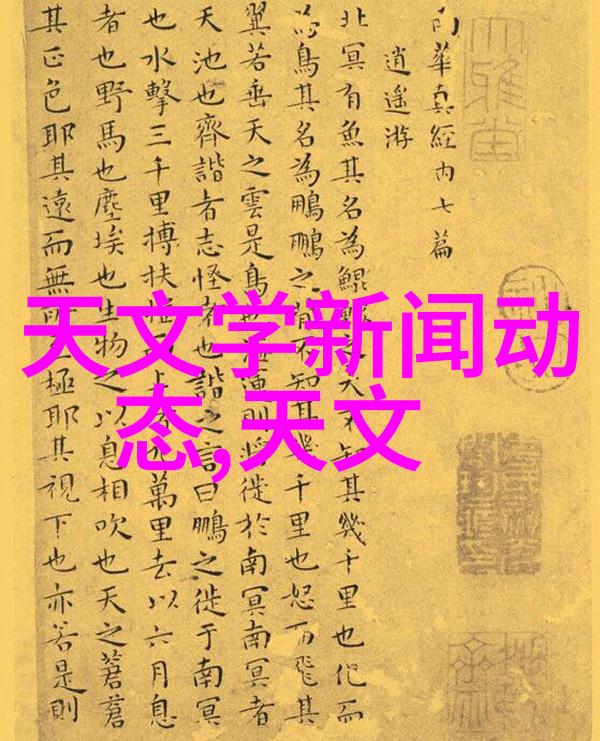 天文学新闻动
态,天文
南華真經內七篇
逍遙游
北冥有魚其名為鯤鯤之大不知其幾千里也化而
為鳥其名為鵬鵬之背不知其幾千里也怒而飛其
翼若垂天之雲是鳥也海運則將徙於南冥南冥者
天池也齊諧者志怪者也諧之言曰鵬之徙于南冥
也水擊三千里摶扶搖而上者九萬里去以六月息
者也野馬也塵埃也生物之以息相吹也天之蒼蒼
其正色耶其遠而無所至極耶其視下也亦若是則
大雅堂